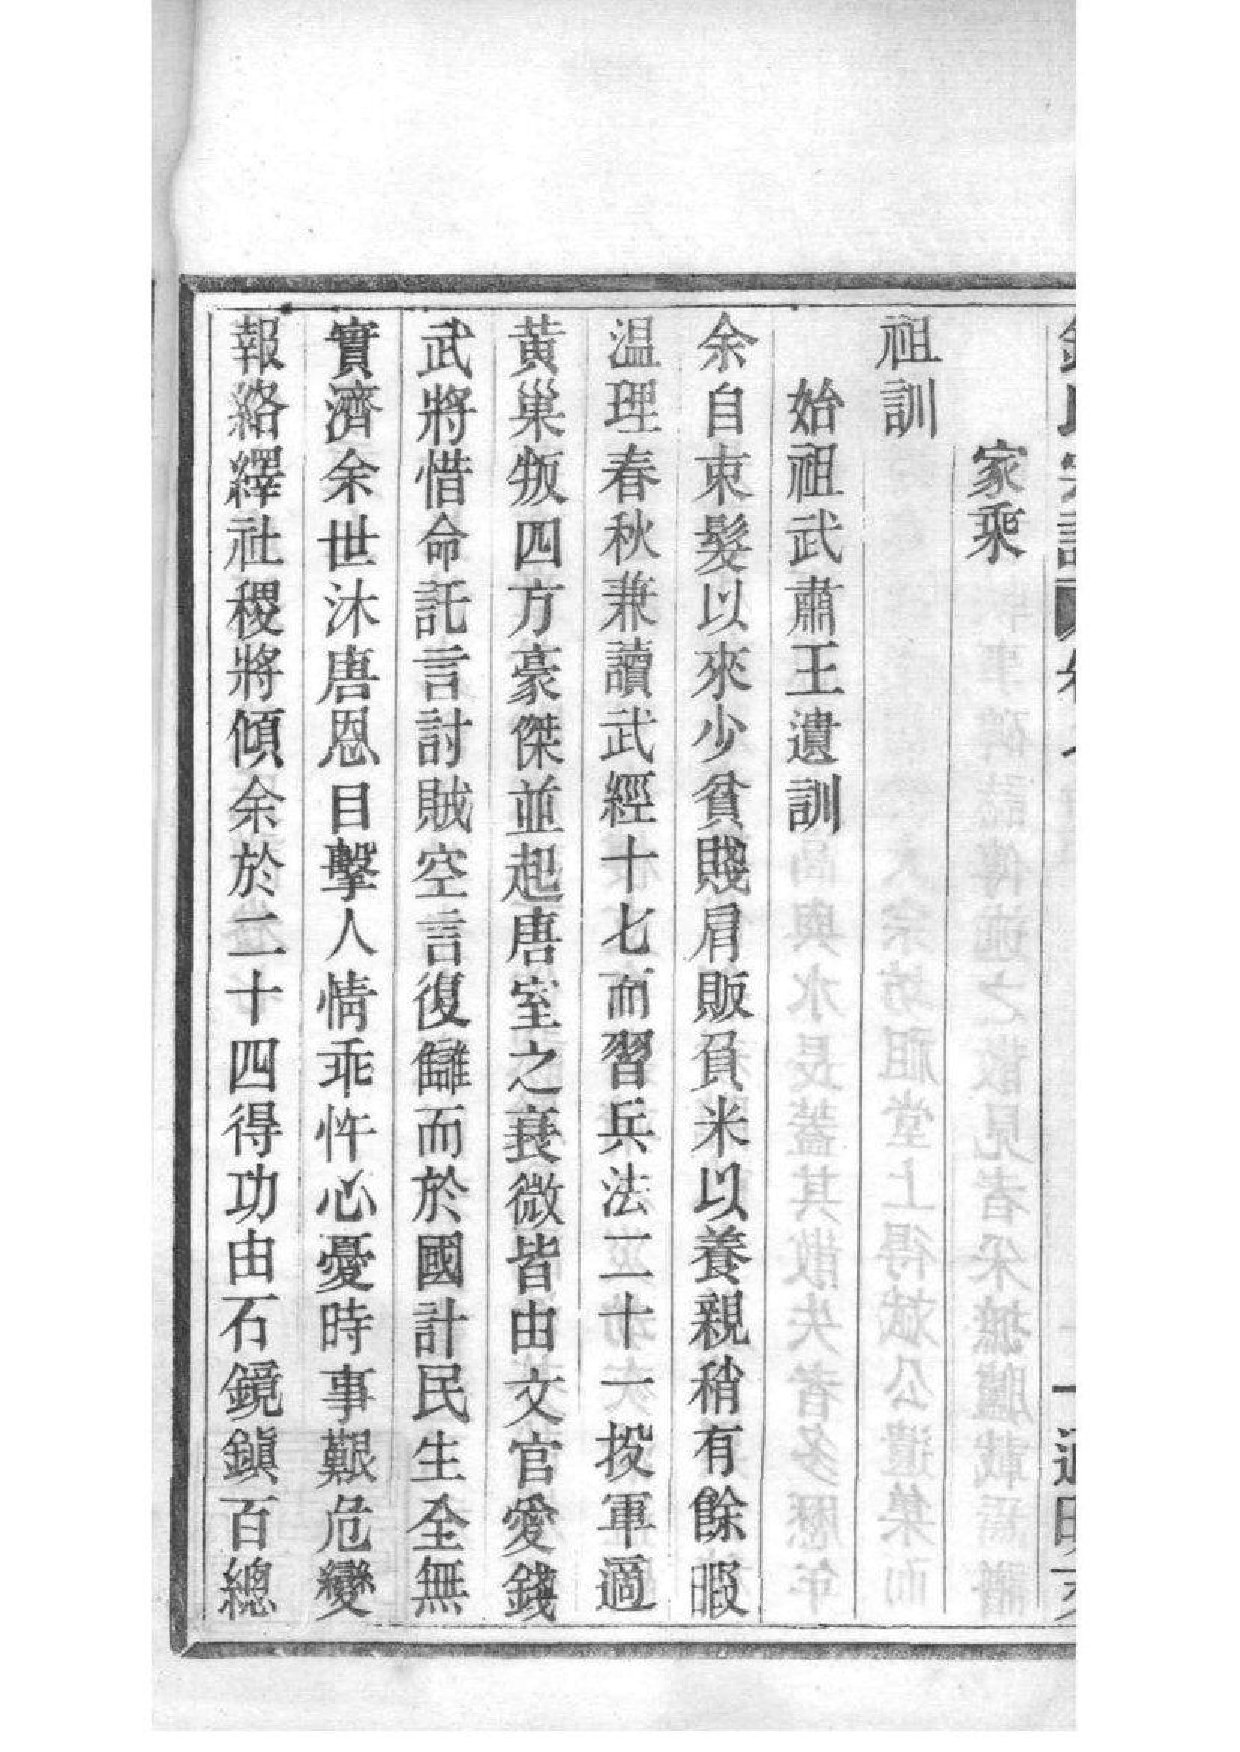 家乘
祖訓
始祖武肅王遺訓
余自束髮以來少貧賤肩販負米以養親稍有餘暇
温理春秋兼讀武經十七而習兵法二十一投軍適
黃巢叛四方豪傑並起唐室之衰微皆由文官愛錢
武將惜命託言討賊空言復讎而於國計民生全無
實濟余世沐唐恩目擊人情乖忤心憂時事艱危變
報絡繹社稷將傾余於二十四得功由石鏡鎭百總